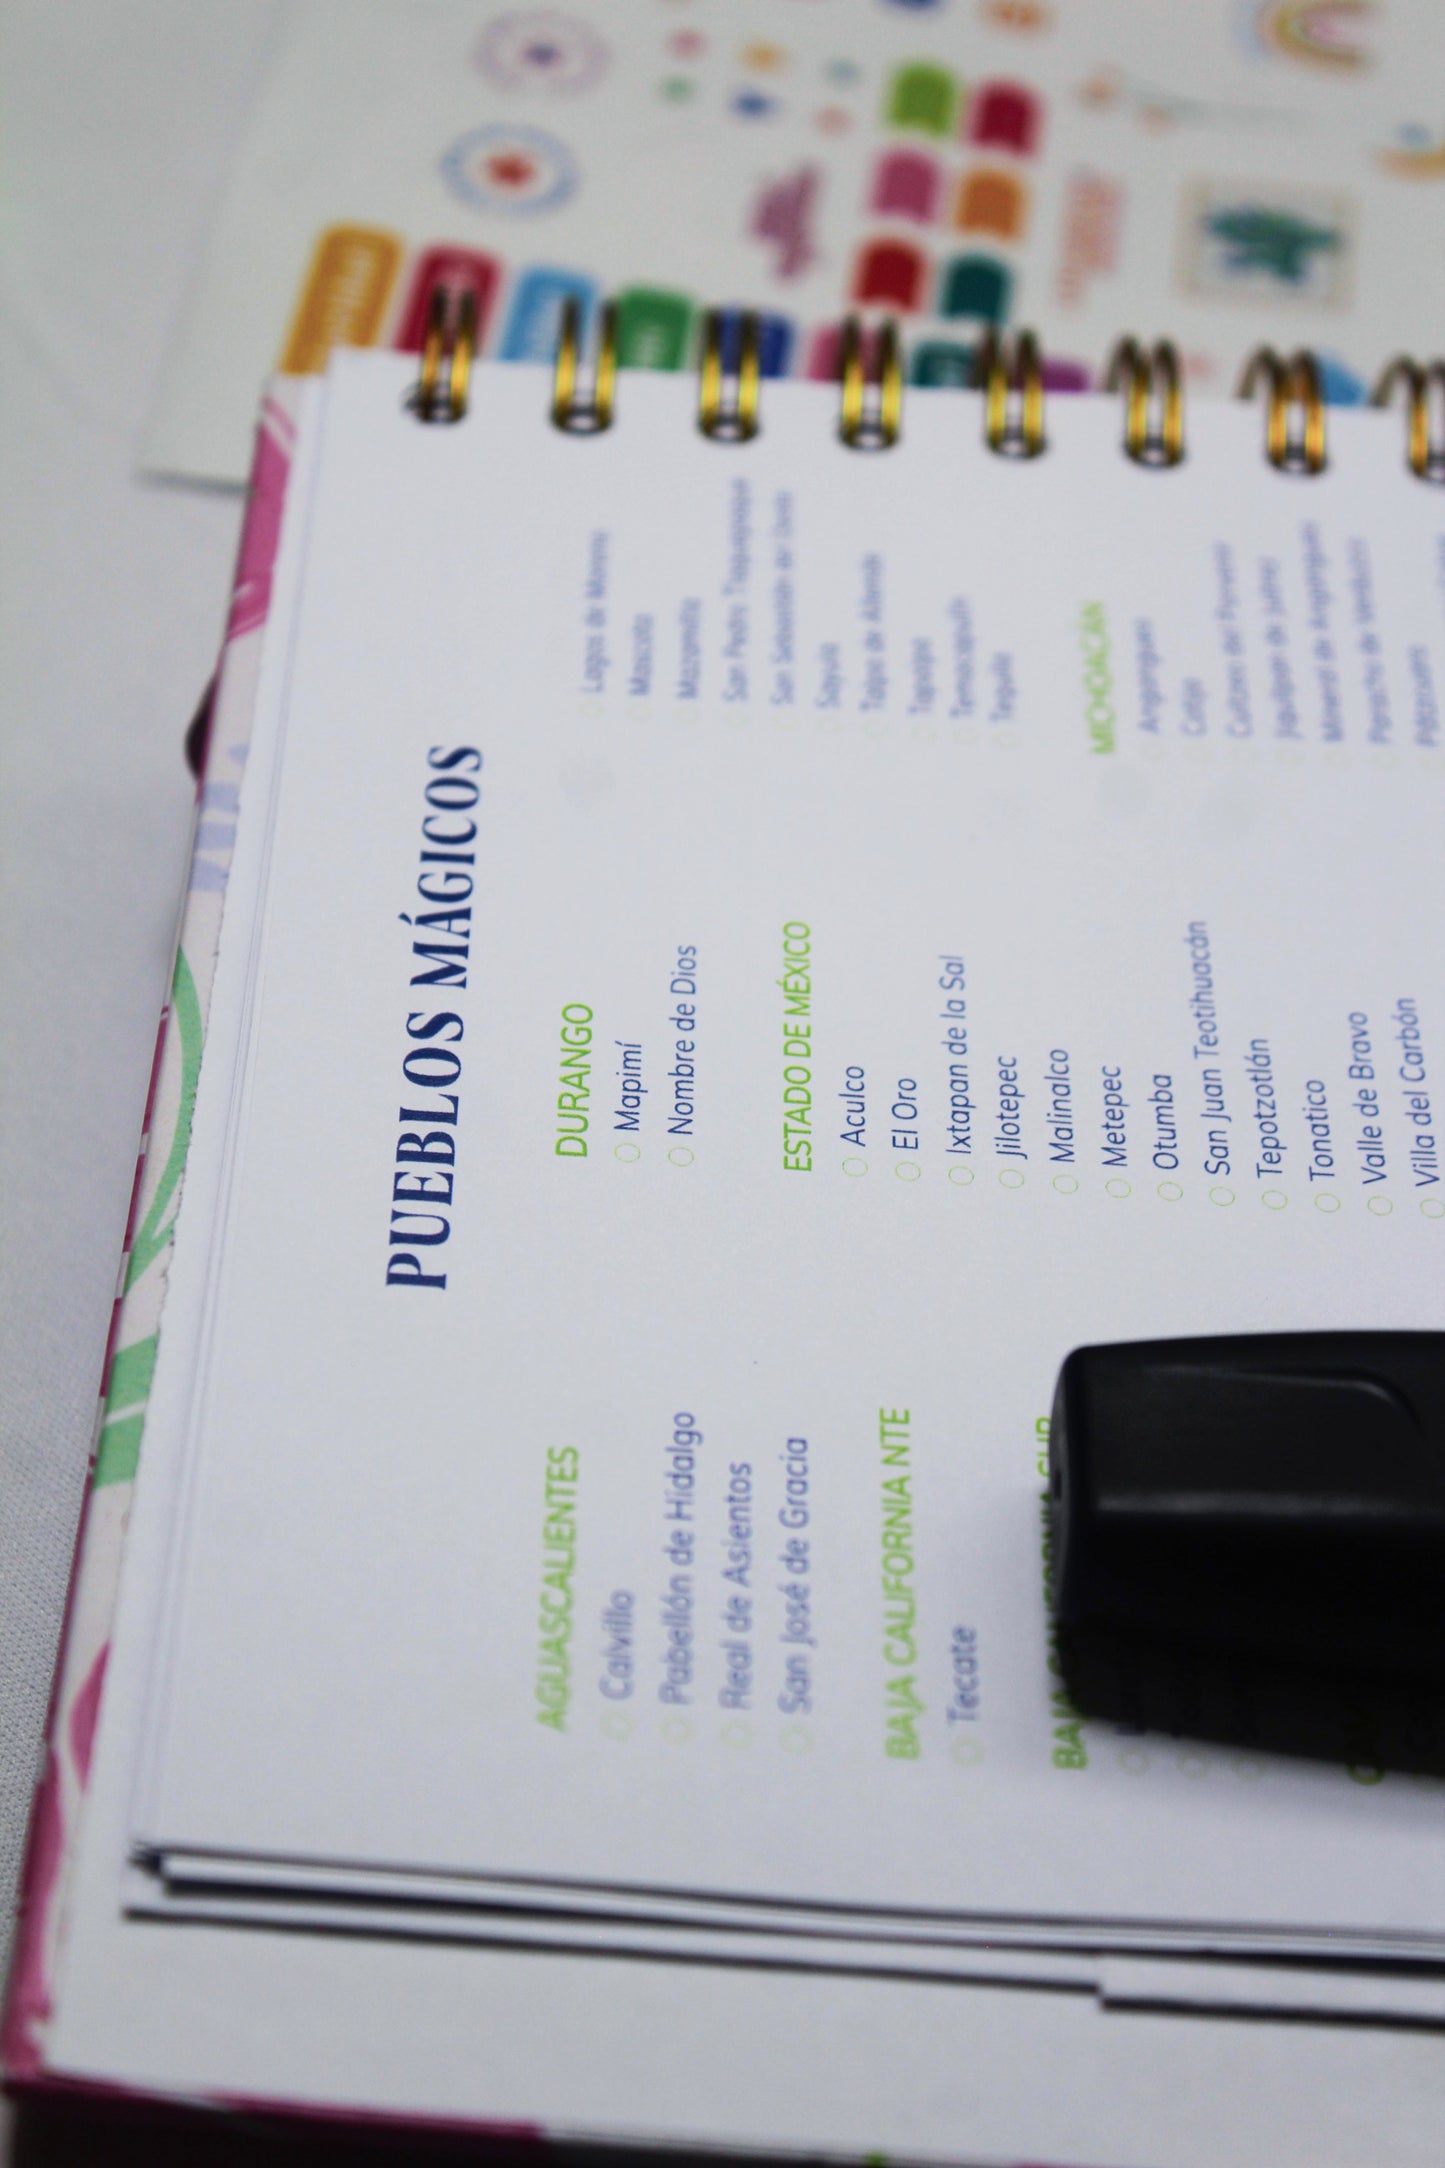 PUEBLOS MÁGICOS
AGUASCALIENTES
Calvillo
Pabellón de Hidalgo
Real de Asientos
San José de Gracia
BAJA CALIFORNIA NTE
Tecate
DURANGO
Mapimí
Nombre de Dios
ESTADO DE MÉXICO
Aculco
El Oro
Ixtapan de la Sal
Jilotepec
Malinalco
Metepec
Otumba
San Juan Teotihuacán
Tepotzotlán
Tonatico
Valle de Bravo
Villa del Carbón
Lagos de Moreno
Mascota
Mazamitla
San Pedro Tlaquepaque
San Sebastián del Oeste
Sayula
Talpa de Allende
Tapalpa
Temacapulín
Tequila
MICHOACÁN
Angangueo
Cotija
Jiquilpan de Juárez
Mineral de Angangueo
Paracho de Verduzco
Pátzcuaro